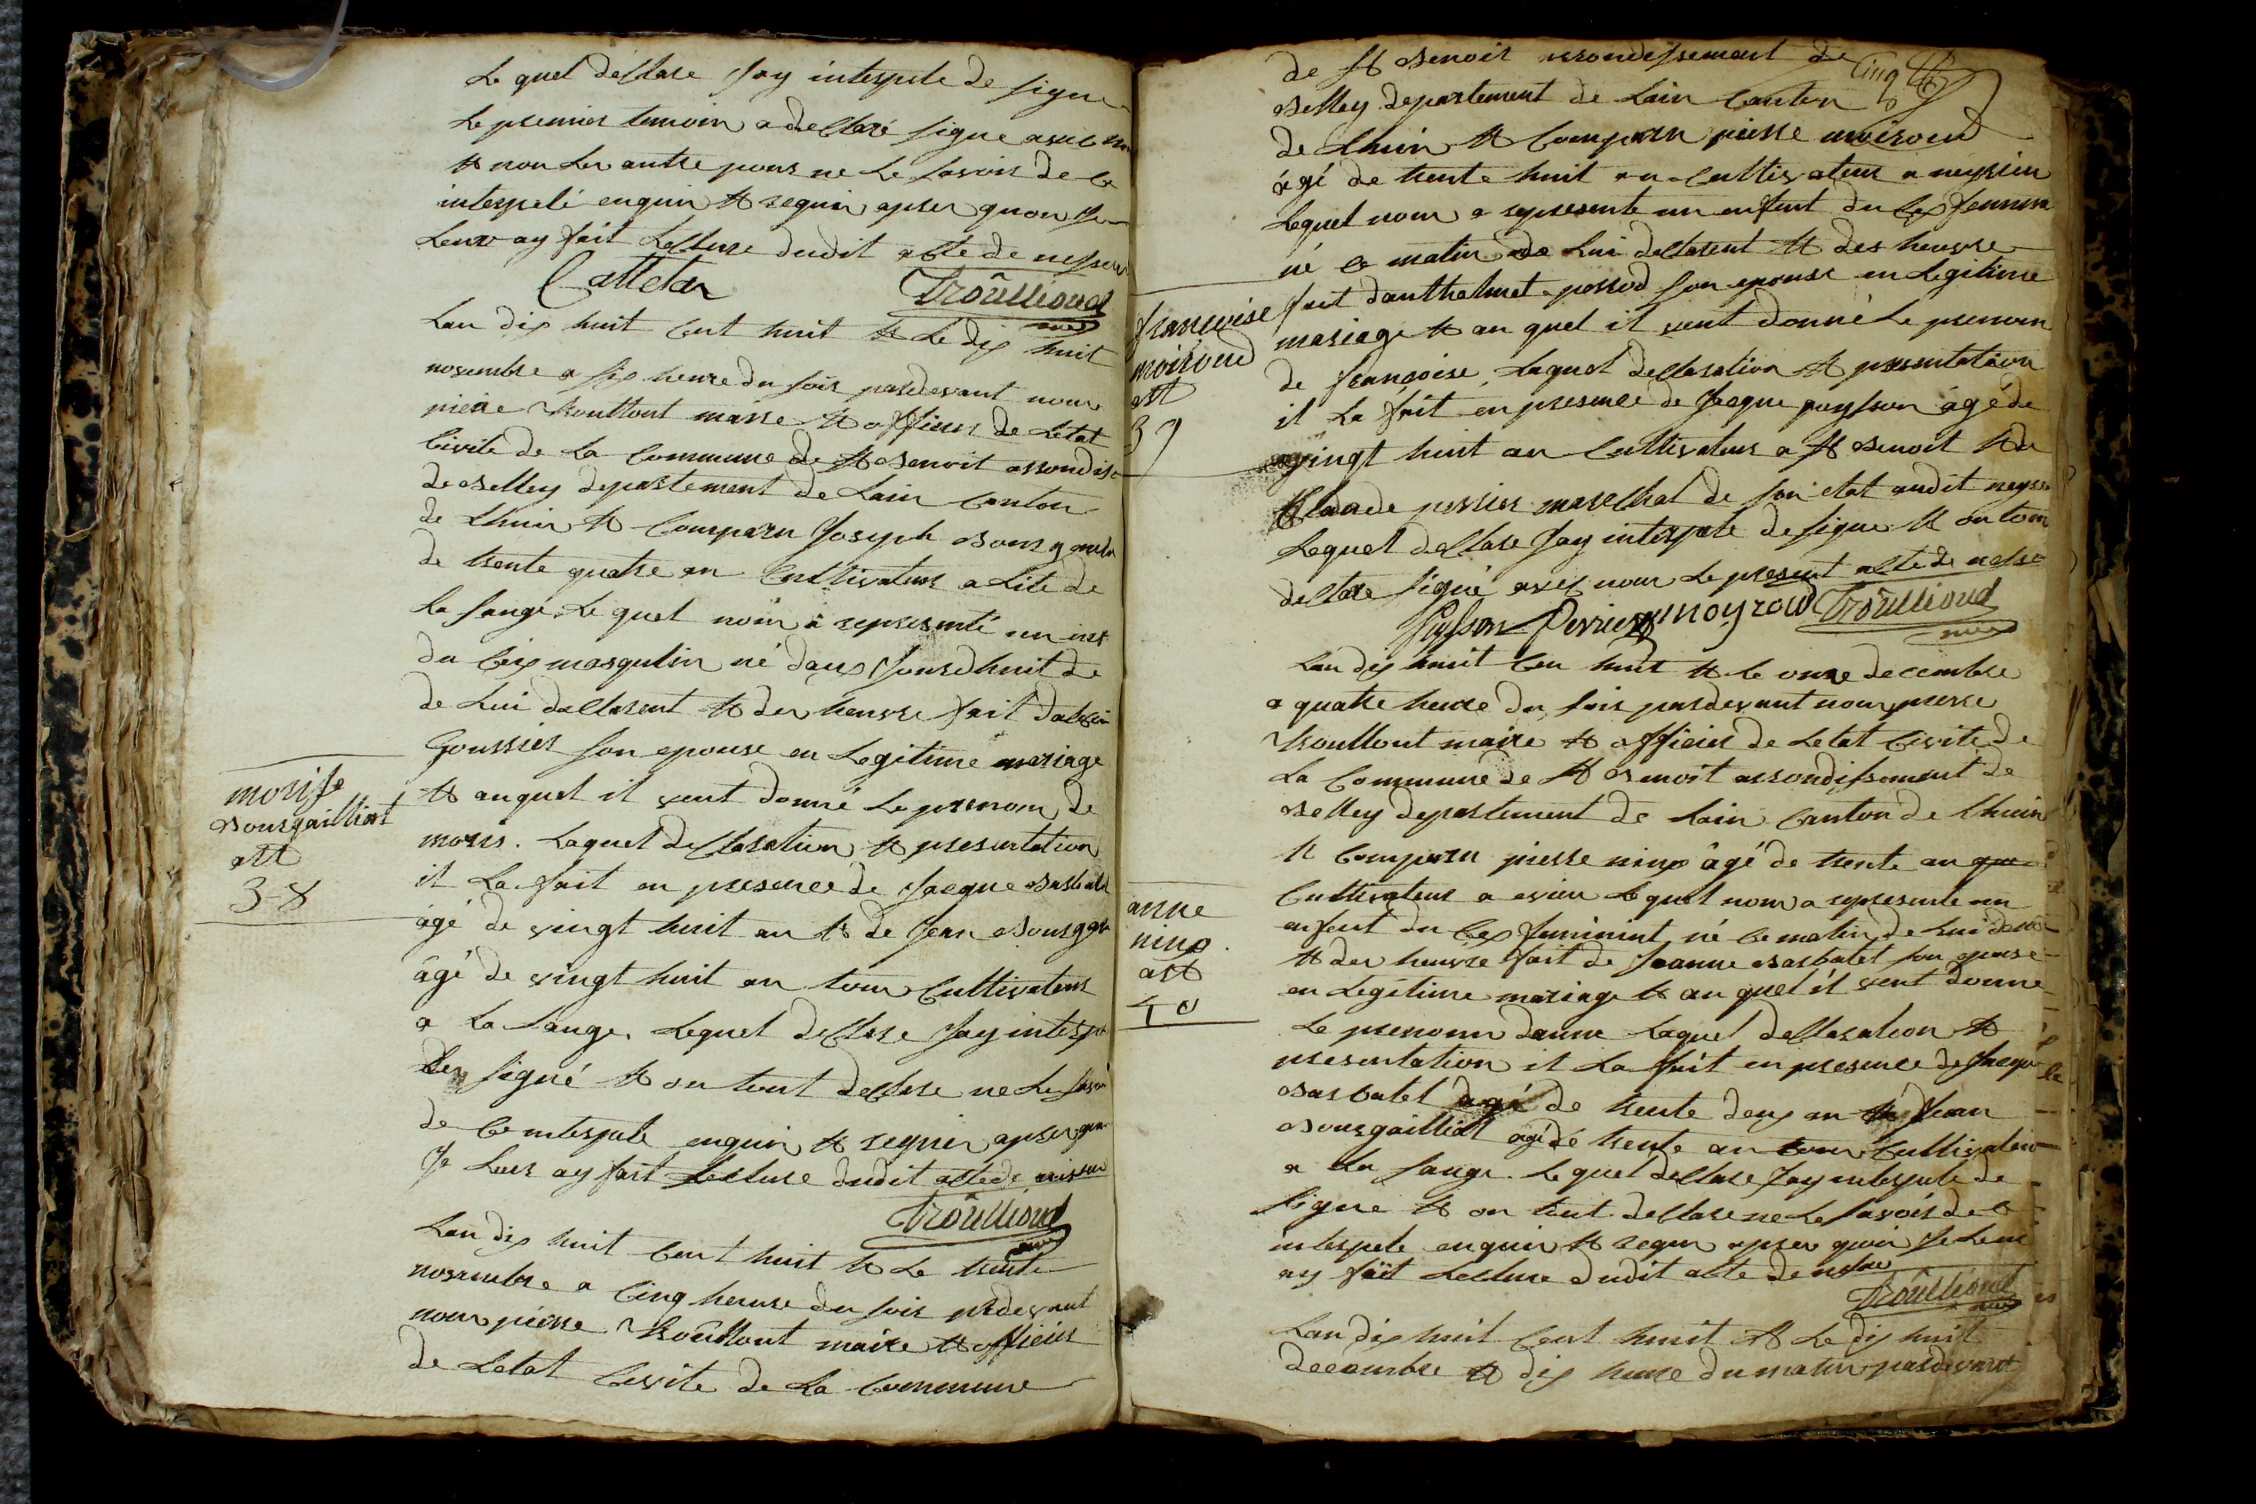 Le quel déclare jay interpele de signe
Le premier temoin a declaré signe avec nou
et non les autre pour ne le savoir de ce
interpelé enquir et requir apser quon je
Leur ay fait Lecture dudit acte de nessence
Catteton Troullioud
Lan dix huit cent huit et le dix huit
novembre a six heure du soir pardevant nour
pierre troulliout maire et officier de Letat
Civile de La Commune de St Benoit arrondis
de Belley departement de Lain Canton
de Lhuir et Comparu Joseph
de trente quatre an Cultivateur a Lite de
la sange. Le quel nour a representé un
du cex masqulin né dans jourdhuit de
de Lui declarent et der heurre fait
Goussier son epouse en Legitime mariage
et auquel il veut donné Le prenom de
moris. Laquel declaration et presentation
il La fait en presence de Jacque
âgé de vingt huit an et de Jean
âgé de vingt huit an tour Cultivateur
a La sange. Lequel declare jay interpe
der signé et on tout declare ne Le savoir
de ce interpele enquir et requir apser quon
Je Leur ay fait Lecture dudit acte de
Troullioud
Lan dix huit cent huit et Le trente
novembre a cinq heure du soir pardevant
nour pierre troulliout maire et officier
de Letat Civile de La Commune
morise
Bourgailliot
38
Cinq
de St Benoit arrondissement de
Belley departement de Lain Canton
de Lhuir et Comparu pierre moiroud
âgé de trente huit an Cultivateur a neyrieu
Lequel nour a representé un enfent du cex feminin
né ce matin de Lui declarent et des heurre
fait danthelmet possod son epouse en Legitime
mariage et au quel il veut donné Le prenom
de francoise, Laquel declaration et presentation
il La fait en presence de Jacque puysson âgé de
vingt huit an Cultivateur a St Benoit et de
Claude perrier marechal de son etat audit
Lequel declare jay interpele de signe et on tour
declare signé avec nour Le present acte de
Puysson Perrier moyroud Troullioud
francoise
moiroud
39
Lan dix huit cen huit et le onze decembre
a quatre heure du soir pardevant nour pierre
troulliout maire et officier de Letat Civile de
La Commune de St Benoit arrondissement de
Belley departement de Lain Canton de Lhuir
et Comparu pierre ninp âgé de trente an
Cultivateur a evieu Lequel nour a representé un
enfent du cex feminint né ce matin de Lui
et der heurre fait de Jeanne Barbolet son epouse
en Legitime mariage et au quel il veut donne
Le prenom danne Laquel declaration et
presentation il La fait en presence de Jacque
Barbolet âgé de trente deux an et Jean
Bourgailliot agé de trente an tour Cultivateur
a La sange. Lequel declare jay interpele de
signe et on tout declare ne Le savoir de ce
interpele enquir et requr apser quoir Je Leur
ay fait Lecture dudit acte de
Troullioud
anne
ninp
40
Lan dix huit cent huit et Le dix huit
decembre et dix heure du matin pardevant